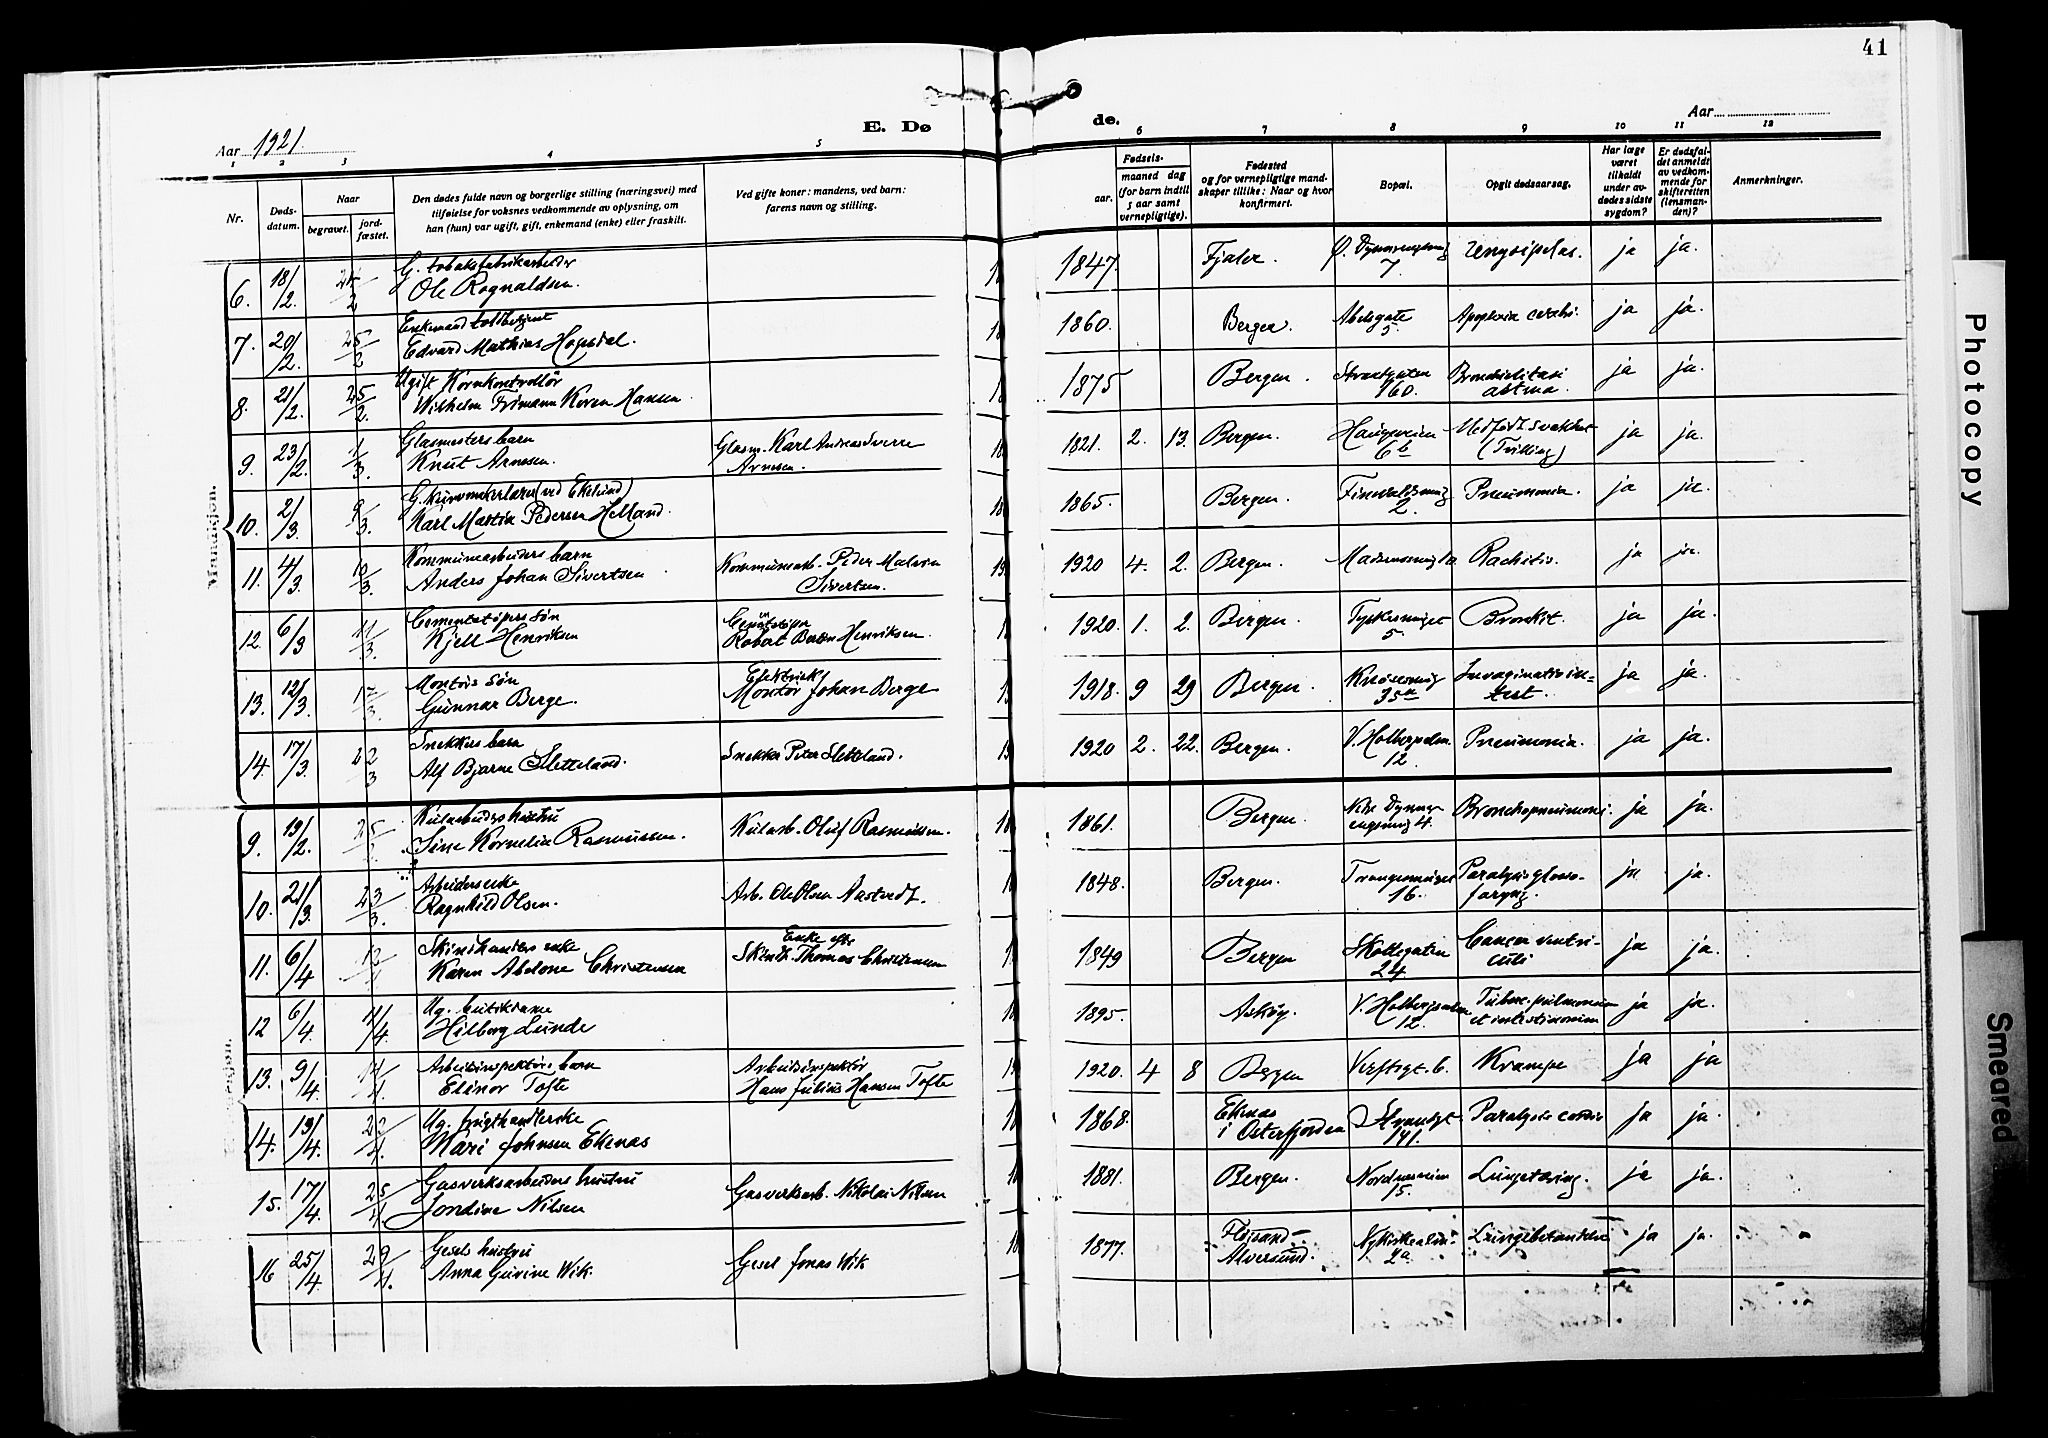 41
Aar 1921.
E. Dø
de.
Aar
1 2 3 4 5 6 7 8 9 10 11 12
Nr.
Døds-
datum.
Naar
begravet.
jord-
fæstet.
Den dødes fulde navn og borgerlige stilling (næringsvei) med
tilføielse for voksnes vedkommende av oplysning, om
han (hun) var ugift, gift, enkemand (enke) eller fraskilt.
Ved gifte koner: mandens, ved barn:
farens navn og stilling.
Fødsels-
aar.
maaned dag
(for barn indtil
5 aar samt
vernepligtige).
Fødested
og for vernepligtige mand-
skaper tillike: Naar og hvor
konfirmert.
Bopæl.
Opgit dødsaarsag.
Har læge
været
tilkaldt
under av-
dødes sidste
sygdom?
Er dødsfal-
det anmeldt
av vedkom-
mende for
skifteretten
(lensman-
den)?
Anmerkninger.
Mandkjøn.
6. 18/2. G. tobaksfabrikarbeider
Ole Ragnaldsen. 1847. Fjaler. 7. ja ja.
7. 20/2. 25/2 Enkemand toldbetjent
Edvard Mathias Hopsdal. 1860. Bergen. Abelsgate
5. Apoplexia cerebri. ja ja.
8. 21/2. 25/2. Ugift Kornkontrollör
Wilhelm Frimann Koren Hansen. 1875 Bergen. Strandgaten
160. astma. ja ja.
9. 23/2. 1/3. Glasmesters barn
Knut Arnesen. Glasm. Karl Andreas Sverre
Arnesen. 1821. 2. 13. Bergen. Haugeveien
6b Medfødt svakhet
(Tvilling) ja ja.
10. 2/3 9/3. (ved Ekelund)
Karl Martin Pedersen Helland. 1865. Bergen. 2. Pneumonia. ja ja.
11. 4/3. 10/3. Kommunearbeiders barn
Anders Johan Sivertsen Kommunearb. Peder
Sivertsen. 1920 4. 2. Bergen. Rachitis. ja ja.
12. 6/3 11/3. Cementstøpers søn
Kjell Henriksen
Robert Henriksen. 1920. 1. 2. Bergen. 5. Bronkit. ja ja.
13. 12/3. 17/3. Montørs søn
Gunnar Berge. Elektrisk
Montör Johan Berge 1918. 9 29 Bergen. 35a Invaginatio in-
test. ja ja.
14. 17/3. 22/3 Snekkers barn
Alf Bjarne Sletteland. Snekker Peter Sletteland. 1920 2. 22. Bergen. V. Holbergsalm.
12. Pneumonia. ja ja.
9. 19/2. Kularbeiders hustru
Sine Kornelia Rasmussen. Kularb. Oluf Rasmussen. 1861. Bergen. Bronchopneumoni. ja ja.
10. 21/3. 23/3. Arbeiders enke
Ragnhild Olsen. Arb. Ole Olsen 1848. Bergen. 16. Paralysis glosso-
faryng. ja ja.
11. 6/4 12/4 Skinnhandlers enke
Karen Abelone Christensen Enke efter
Skinnh. Thomas Christensen 1849 Bergen Skottegaten
24 Cancer ventri-
culi ja ja.
12 6/4. 11/4. Ug. butikdame
Hilborg Lunde 1895. Askøy. V. Holbergsalm
12. Tuberc. pulmonum
et intestinorum ja ja.
13. 9/4. 14/4. Arbeidsinspektörs barn
Elinor Tofte Arbeidsinspektör
Hans Julius Hansen Tofte 1920. 4 8 Bergen Verftsgt. 6. Krampe ja ja
14. 19/4. 22/4. Ug. frugthandlerske
Mari Johnsen Ekenas 1868. Ekenas
i Osterfjorden Strandgt.
141. Paralysis cordis ja ja.
15. 17/4. 25/4. Gasverksarbeiders hustru
Jondine Nilsen Gasverksarb. Nikolai Nilsen 1881. Bergen. Nordnesveien
15. Lungetæring. ja ja.
16 25/4. 29/4. Gesels hustru
Anna Gurine Wik. Gesel Jonas Wik 1877. Fløjsand
Alversund. Nykirkealm.
2a. Lungebetændelse ja ja.
Photocopy
Smeared